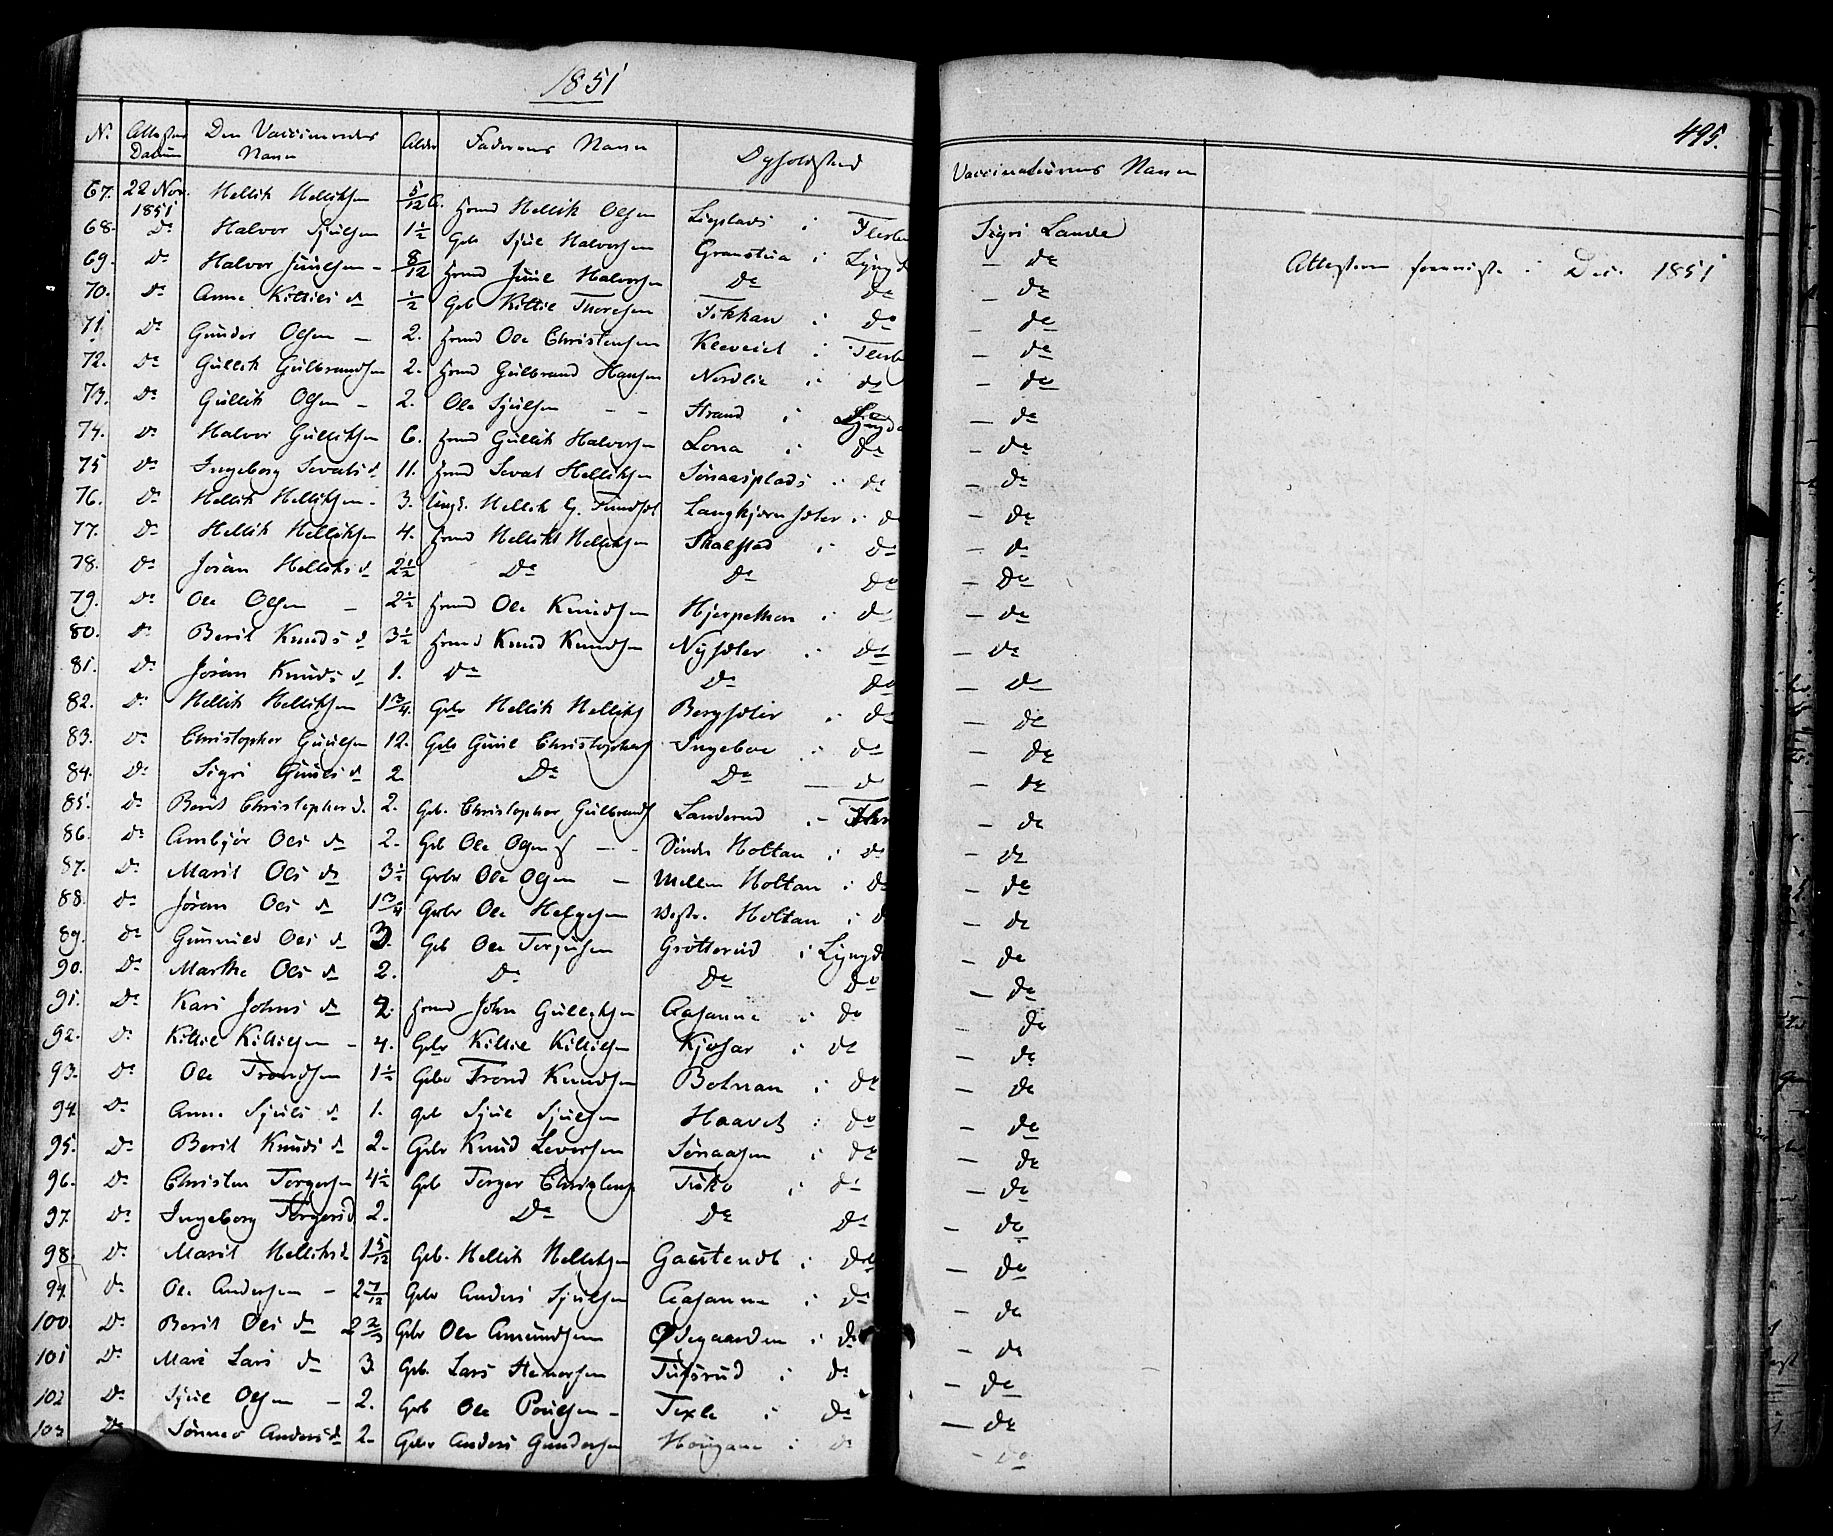 1851
495.
N. Attestens Datum Den Vaccineredes Navn Alder Faderens Navn Opholdssted Vaccinateurens Navn
67. 22 Nov. 1851 Hellik Helliksen 5/12 Hmd Hellik Olsen i Flesb Sigri Lande
68. Do Halvor Sjulsen 1½ Gbr Sjul Halvorsen Granstua i Lyngd — do
Attesten fremviste i Dec. 1851
69. Do Halvor Juulsen - 8/12 Hmd Juul Halvorsen Do do — do
70. Do Anne Kittils d ½ Gbr Kittil Thoresen i do — do
71. Do Gunder Olsen — 2. Hmd Ole Christensen i Flesb — do
72. Do Gullik Gulbrandsen 2. Hmd Gulbrand Hansen Nordlie i do — do
73. Do Gullik Olsen — 2. Ole Sjulsen — — Strand i Lyngd — do
74. Do Halvor Gulliksen 6. Hmd Gullik Halvorsen Lona i do — do
75 Do Ingeborg Sevats d. 11. Hmd Sevat Helliksen i do — do
76. Do Hellik Helliksen - 3. Ungk. Hellik G. i d — do
77. Do Hellik Helliksen 4. Hmd Hellik Helliksen i do — do
78. Do Jøran Helliks d 2½ Do Do do — do
79. Do Ole Olsen — 2½ Hmd Ole Knudsen i d — do
80. Do Berit Knuds d 3½ Hmd Knud Knudsen i do — do
81. Do Jøran Knuds d 1. Do Do do — do
82. Do Hellik Helliksen 1¾. Gbr Hellik Helliks i do — do
83. Do Christopher Guulsen 12. Gbr Guul Christophers Ingeboe i do — do
84. Do Sigri Guuls d 2. Do Do — d — do
85. Do Berit Christopher d. 2. Gbr. Christopher Gulbrands Landerud i — do
86. Do Ambjør Ols d 2. Gbr Ole Olsen — - Søndre Holtan i do — do
87. Do Marit Ols d 3½ Gbr Ole Olsen — Mellem Holtan i do — do
88. Do Jøran Ols d 1¾ Gbr Ole Helgesen Vestr. Holtan i d — do
89. Do Gunnild Ols d 3. Gbr Ole Torjusen Grøtterud i Lyngd — do
90. Do Marthe Ols d 2. Do Do do — do
91. Do Kari Johns d 2. Hmd John Gulliksen Aasanne i do — do
92. Do Kittil Kittilsen - 4. Gbr Kittil Kittilsen i do — do
93. Do Ole Trondsen 1½ Gbr Trond Knudsen i do — do
94. Do Anne Sjuls d 1. Gbr Sjul Sjulsen Haavet i do — do
95. Do Berit Knuds d 2. Gbr Knud Seversen Sønaasen i do — do
96. Do Christen Torgersen 4½ Gbr Torger Christens i do — do
97. Do Ingeborg Torgers d 2. Do Do do — do
98. Do Marit Helliks d 1 5/12 Gbr. Hellik Helliksen i do — do
99. Do Ole Andersen - 2 7/12 Gbr Anders Sjulsen Aasanne i do — do
100. Do Berit Ols d 2 2/3 Gbr Ole Amundsen Ødegaarden i do — do
101 Do Mari Lars d 3. Gbr. Lars Tufsrud i do — do
102 Do Sjul Olsen - 2. Gbr Ole Poulsen - i do — do
103 Do Sønnev Anders d 2. Gbr Anders Gundersen Hougane i do — do